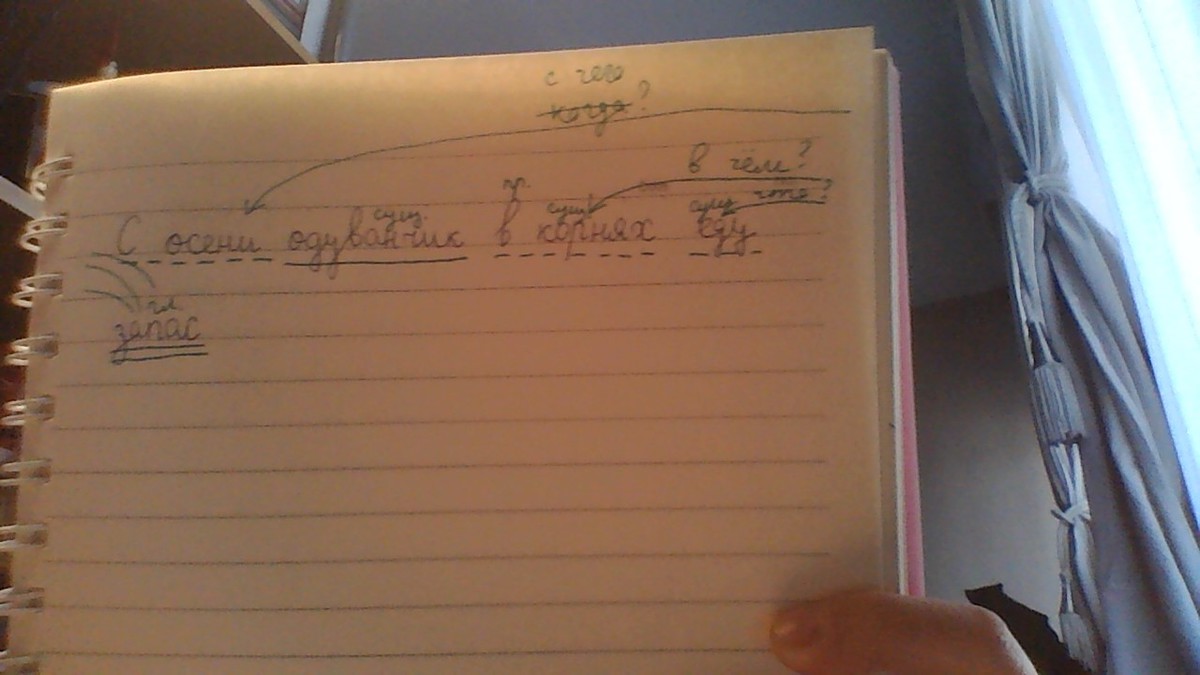 с чего
когда?
в чём?
пр. что?
сущ. сущ. сущ.
С осени одуванчик в корнях еду
гл.
запас